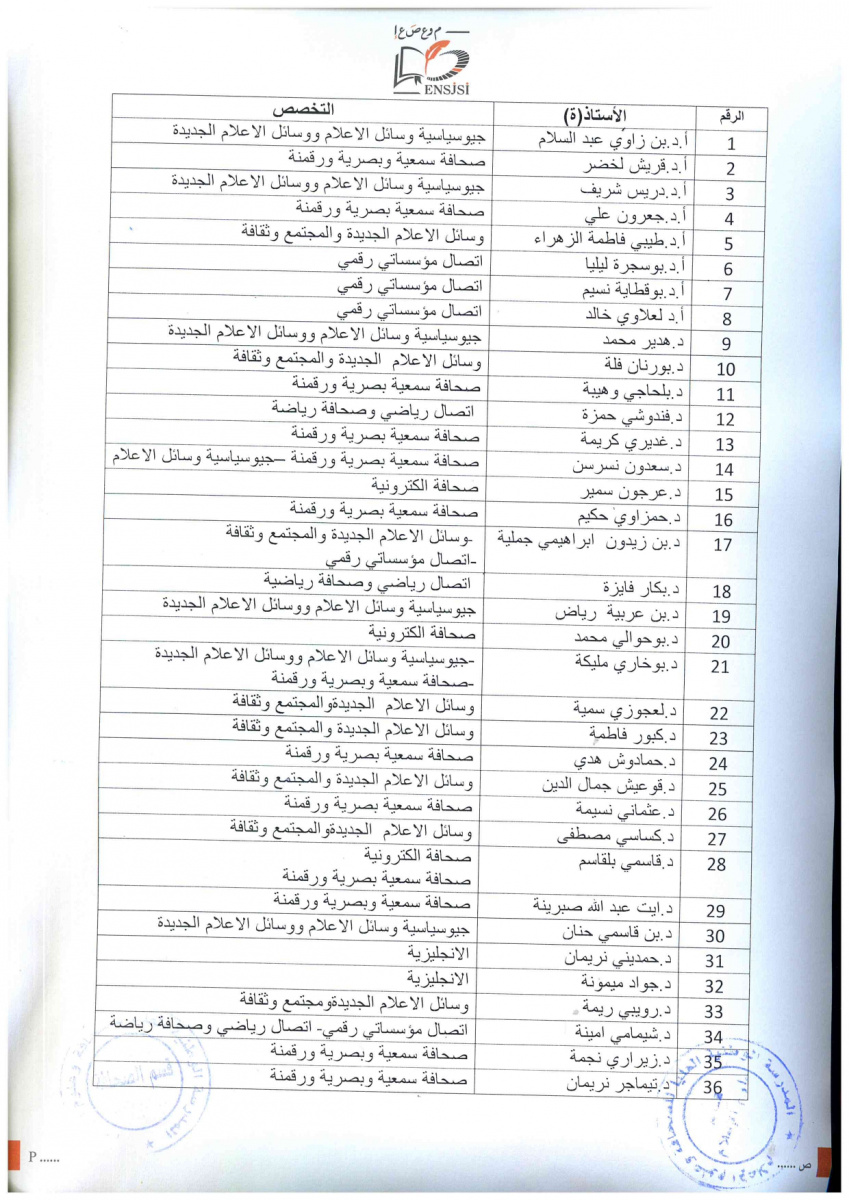 م و ع ص ع إ
ENSJSI
الرقم الأستاذ(ة) التخصص
1 أ.د.بن زاوي عبد السلام جيوسياسية وسائل الاعلام ووسائل الاعلام الجديدة
2 أ.د.قريش لخضر صحافة سمعية وبصرية ورقمنة
3 أ.د.دريس شريف جيوسياسية وسائل الاعلام ووسائل الاعلام الجديدة
4 أ.د.جعرون علي صحافة سمعية بصرية ورقمنة
5 أ.د.طيبي فاطمة الزهراء وسائل الاعلام الجديدة والمجتمع وثقافة
6 أ.د.بوسجرة ليليا اتصال مؤسساتي رقمي
7 أ.د.بوقطاية نسيم اتصال مؤسساتي رقمي
8 أ.د لعلاوي خالد اتصال مؤسساتي رقمي
9 د.هدير محمد جيوسياسية وسائل الاعلام ووسائل الاعلام الجديدة
10 د.بورنان فلة وسائل الاعلام الجديدة والمجتمع وثقافة
11 د.بلحاجي وهيبة صحافة سمعية بصرية ورقمنة
12 د.فندوشي حمزة اتصال رياضي وصحافة رياضة
13 د.غديري كريمة صحافة سمعية بصرية ورقمنة
14 د.سعدون نسرسن صحافة سمعية بصرية ورقمنة –جيوسياسية وسائل الاعلام
15 د.عرجون سمير صحافة الكترونية
16 د.حمزاوي حكيم صحافة سمعية بصرية ورقمنة
17 د.بن زيدون ابراهيمي جملية -وسائل الاعلام الجديدة والمجتمع وثقافة
-اتصال مؤسساتي رقمي
18 د.بكار فايزة اتصال رياضي وصحافة رياضية
19 د.بن عربية رياض جيوسياسية وسائل الاعلام ووسائل الاعلام الجديدة
20 د.بوحوالي محمد صحافة الكترونية
21 د.بوخاري مليكة -جيوسياسية وسائل الاعلام ووسائل الاعلام الجديدة
-صحافة سمعية وبصرية ورقمنة
22 د.لعجوزي سمية وسائل الاعلام الجديدةوالمجتمع وثقافة
23 د.كبور فاطمة وسائل الاعلام الجديدة والمجتمع وثقافة
24 د.حمادوش هدي صحافة سمعية بصرية ورقمنة
25 د.قوعيش جمال الدين وسائل الاعلام الجديدة والمجتمع وثقافة
26 د.عثماني نسيمة صحافة سمعية بصرية ورقمنة
27 د.كساسي مصطفى وسائل الاعلام الجديدةوالمجتمع وثقافة
28 د.قاسمي بلقاسم صحافة الكترونية
صحافة سمعية بصرية ورقمنة
29 د.ايت عبد الله صبرينة صحافة سمعية وبصرية ورقمنة
30 د.بن قاسمي حنان جيوسياسية وسائل الاعلام ووسائل الاعلام الجديدة
31 د.حمديني نريمان الانجليزية
32 د.جواد ميمونة الانجليزية
33 د.رويبي ريمة وسائل الاعلام الجديدةومجتمع وثقافة
34 د.شيمامي امينة اتصال مؤسساتي رقمي- اتصال رياضي وصحافة رياضة
35 د.زيراري نجمة صحافة سمعية وبصرية ورقمنة
36 د.تيماجر نريمان صحافة سمعية وبصرية ورقمنة
المدرسة الوطنية العليا للصحافة وعلوم الإعلام
قسم الصحافة
ص ......
P ......